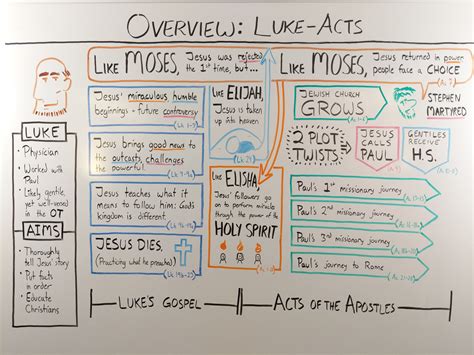 OVERVIEW: LUKE-ACTS
LIKE MOSES, JESUS was rejected
the 1st time, but...
LIKE MOSES, JESUS returned in power,
people face a CHOICE
(Ac. 7)
LUKE
• Physician
• Worked with
Paul
• Likely gentile,
yet well-versed
in the OT
AIMS
• Thoroughly
tell Jesus' story
• Put facts
in order
• Educate
Christians
JESUS' miraculous humble
beginnings - future controversy
JESUS brings good news to
the outcasts, challenges
the powerful.
JESUS teaches what it
means to follow him: God's
kingdom is different.
JESUS DIES.
(Practicing what he preached)
LIKE ELIJAH,
JESUS is taken
up into heaven
LIKE ELISHA,
JESUS' followers go
on to perform miracles
through the power of the
HOLY SPIRIT
JEWISH CHURCH
GROWS
STEPHEN
MARTYRED
2 PLOT
TWISTS
JESUS
CALLS
PAUL
GENTILES
RECEIVE
H.S.
Paul's 1st missionary journey
Paul's 2nd missionary journey
Paul's 3rd missionary journey
Paul's journey to Rome
LUKE'S GOSPEL
ACTS OF THE APOSTLES